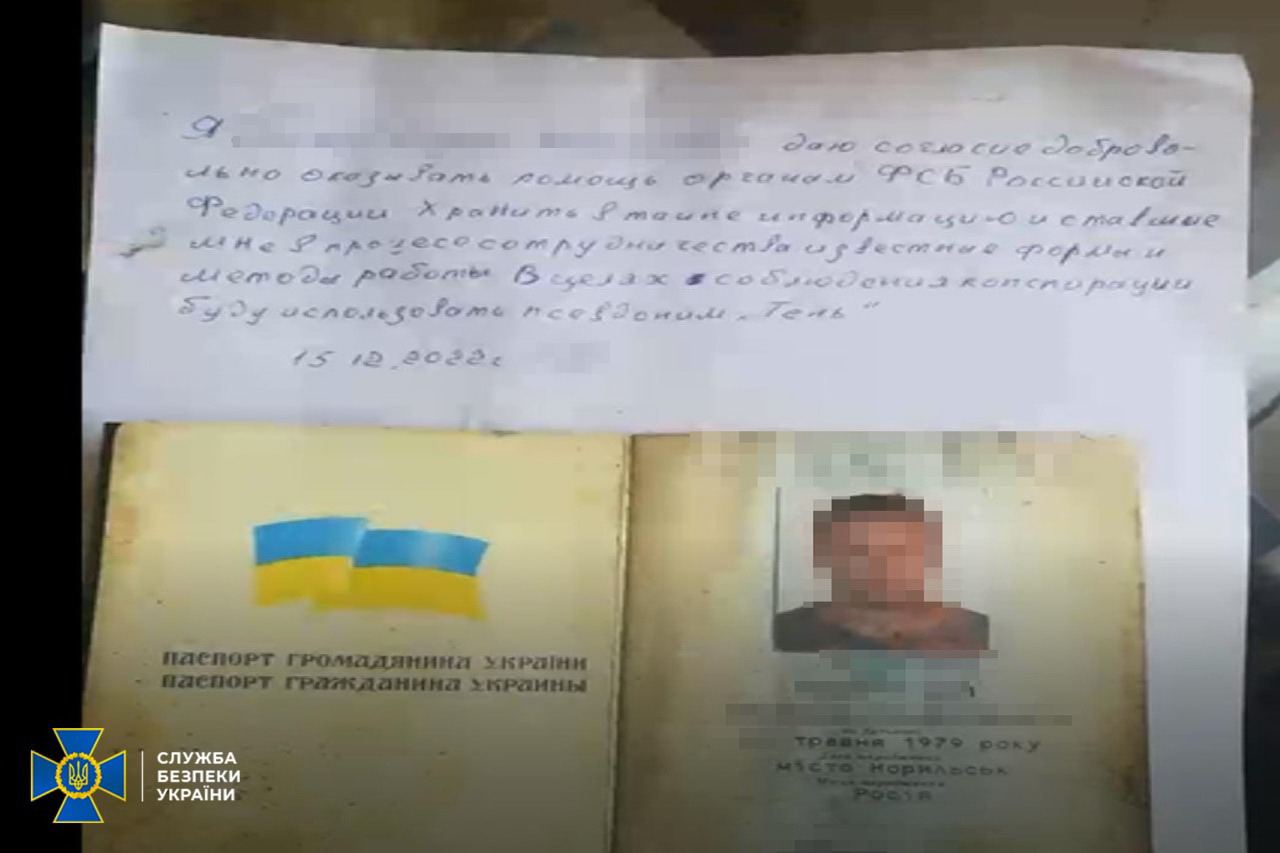 Я
даю согласие доброво-
льно оказывать помощь органам ФСБ Российской
Федерации Хранить в тайне информацию и ставшие
мне в процесе сотрудничества известные формы и
методы работы В целях соблюдения конспирации
буду использовать псевдоним „Тень"
15 12.2022г
ПАСПОРТ ГРОМАДЯНИНА УКРАЇНИ
ПАСПОРТ ГРАЖДАНИНА УКРАИНЫ
травня 1979 року
місто Норильськ
Росія
СЛУЖБА
БЕЗПЕКИ
УКРАЇНИ